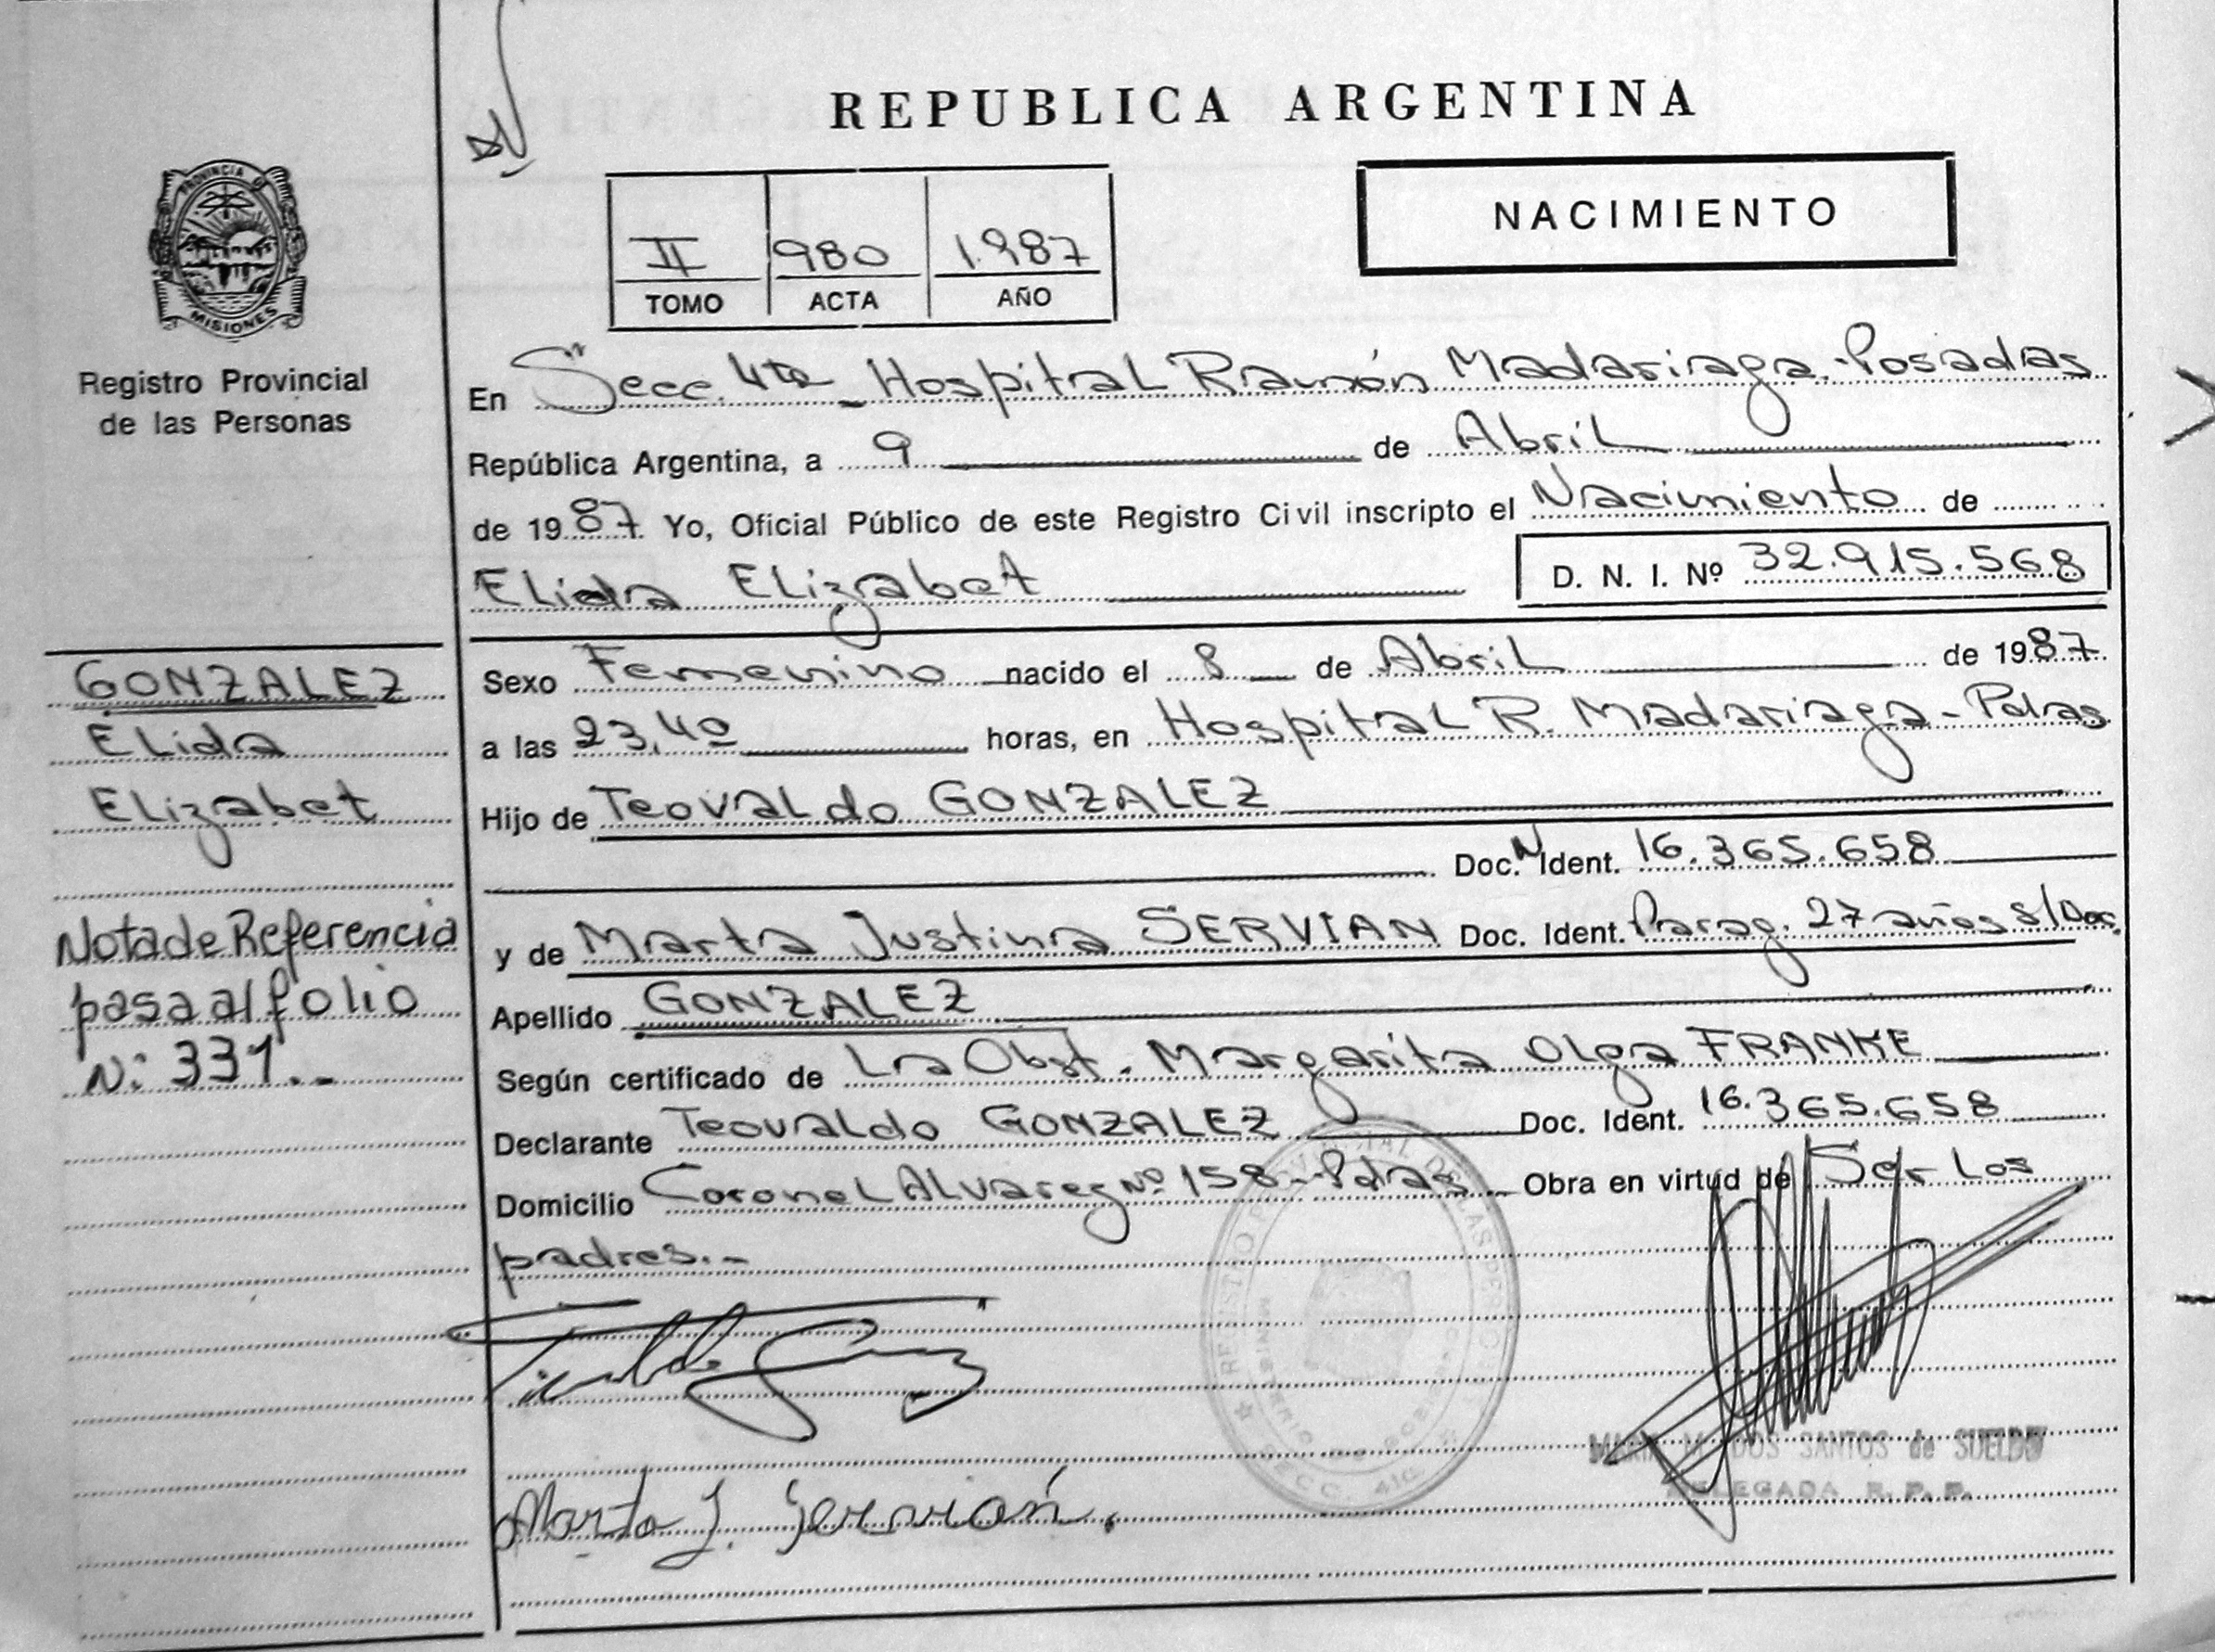 REPUBLICA ARGENTINA
PROVINCIA D
MISIONES
Registro Provincial
de las Personas
II 980 1.987
TOMO ACTA AÑO
NACIMIENTO
En Secc. 4ta _ Hospital Ramón Madariaga - Posadas
República Argentina, a 9 de Abril
de 1987 Yo, Oficial Público de este Registro Civil inscripto el Nacimiento de
Elida Elizabet
D. N. I. Nº 32.915.568
GONZALEZ
Elida
Elizabet
Nota de Referencia
pasa al folio
N: 331.-
Sexo Femenino nacido el 8 de Abril de 1987
a las 23,40 horas, en Hospital R. Madariaga - Pdas
Hijo de Teovaldo GONZALEZ
Doc. N Ident. 16.365.658
y de Marta Justina SERVIAN Doc. Ident. Parag. 27 años s/Doc.
Apellido GONZALEZ
Según certificado de La Obst. Margarita Olga FRANKE
Declarante Teovaldo GONZALEZ Doc. Ident. 16.365.658
Domicilio Coronel Alvarez nº 158 - Pdas Obra en virtud de Ser los
padres.-
REGISTRO PROVINCIAL DE LAS PERSONAS
MINISTERIO DE GOBIERNO
SECC. 4ta
DOS SANTOS de SUELDO
DELEGADA R. P. P.
Marta J. Servián.